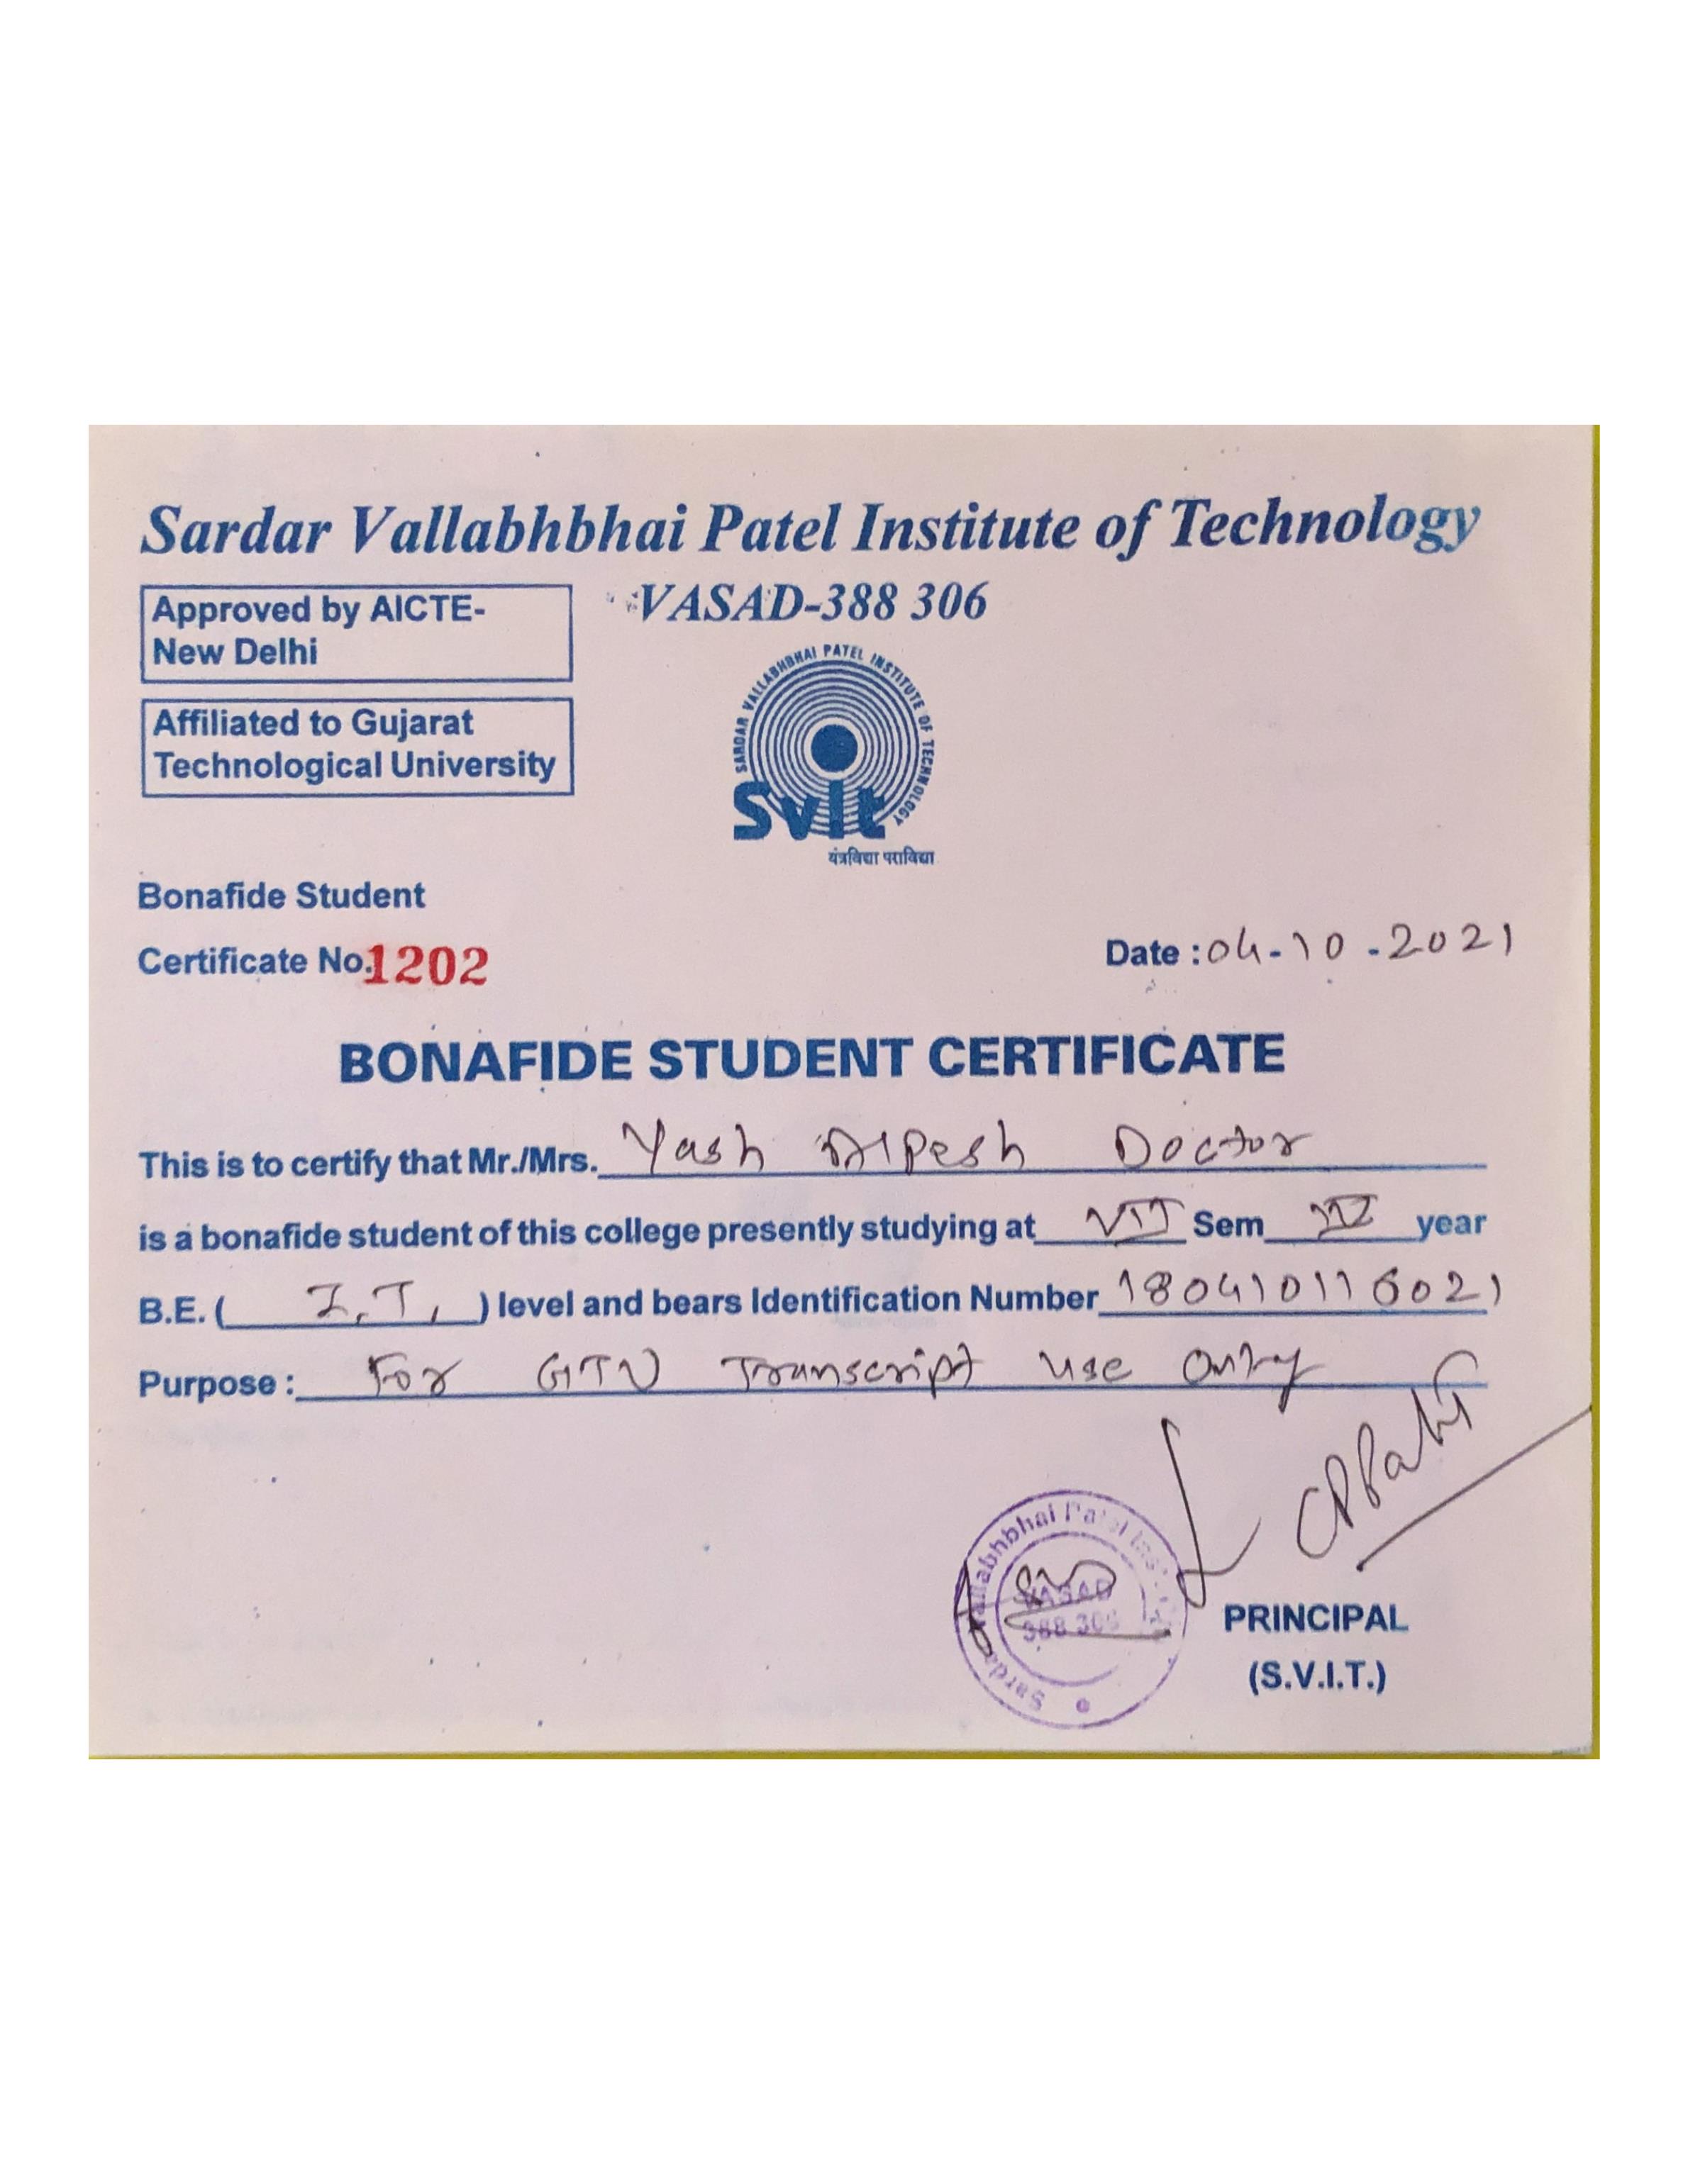 Sardar Vallabhbhai Patel Institute of Technology
VASAD-388 306
Approved by AICTE-
New Delhi
Affiliated to Gujarat
Technological University
SARDAR VALLABHBHAI PATEL INSTITUTE OF TECHNOLOGY
Svit
यंत्रविद्या पराविद्या
Bonafide Student
Certificate No.1202
Date : 04-10-2021
BONAFIDE STUDENT CERTIFICATE
This is to certify that Mr./Mrs. Yash Alpesh Doctor
is a bonafide student of this college presently studying at VII Sem IV year
B.E. ( I.T. ) level and bears Identification Number 180410116021
Purpose : For GTU Transcript use only
Sardar Vallabhbhai Patel Inst
VASAD
388 306
PRINCIPAL
(S.V.I.T.)